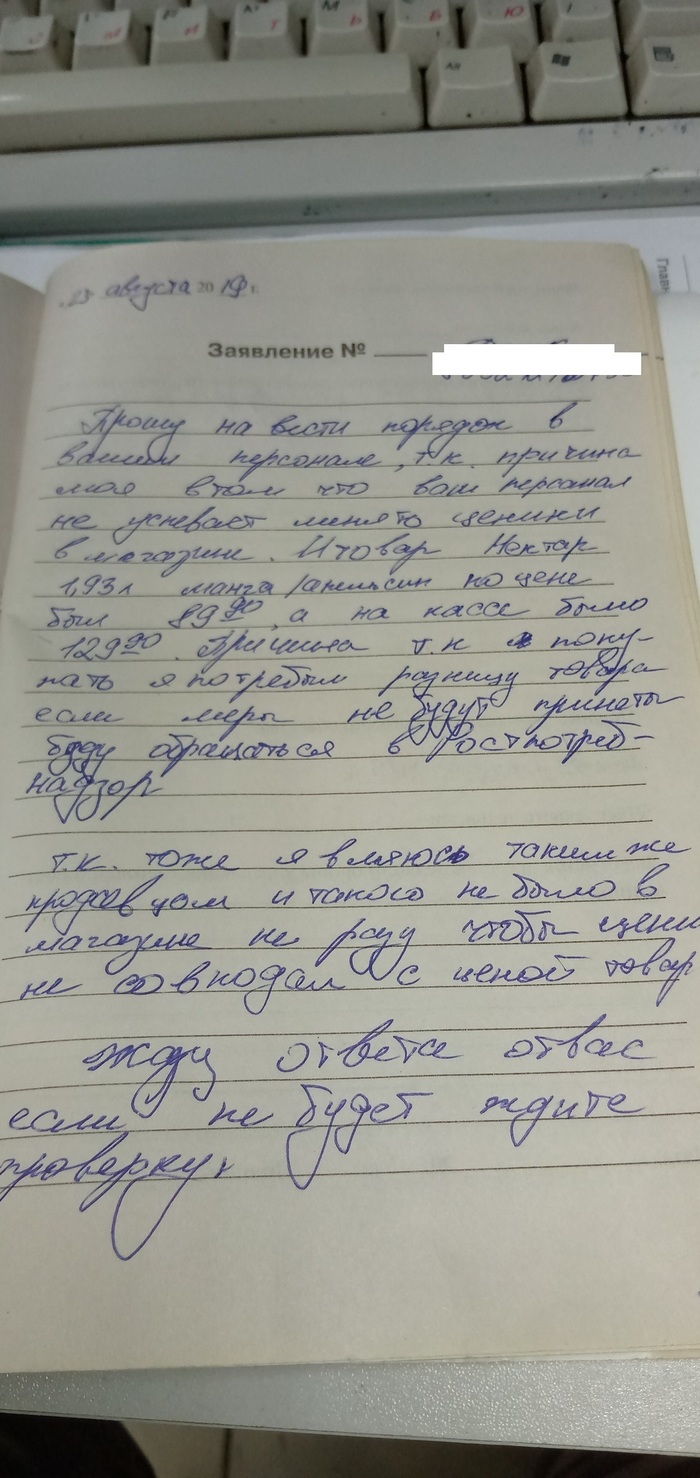 августа 2019 г.
Заявление №
Прошу на вести порядок в
вашем персонале, т.к. причина
моя в том что ваш персонал
не успевает менято ценики
в магазине. И товар Нектар
1,93л манга/апельсин по цене
был 89 90, а на кассе было
129 90. Причина т.к поку-
пать я потребым разницу товара
если меры не будут принеты
буду обращаться в Роспотреб-
надзор
т.к. тоже я вляюсь таким же
продовцом и такого не было в
магазине не разу чтобы цени
не совподал с ценой товар
жду ответа отвас
если не будет ждите
проверку,
Главн